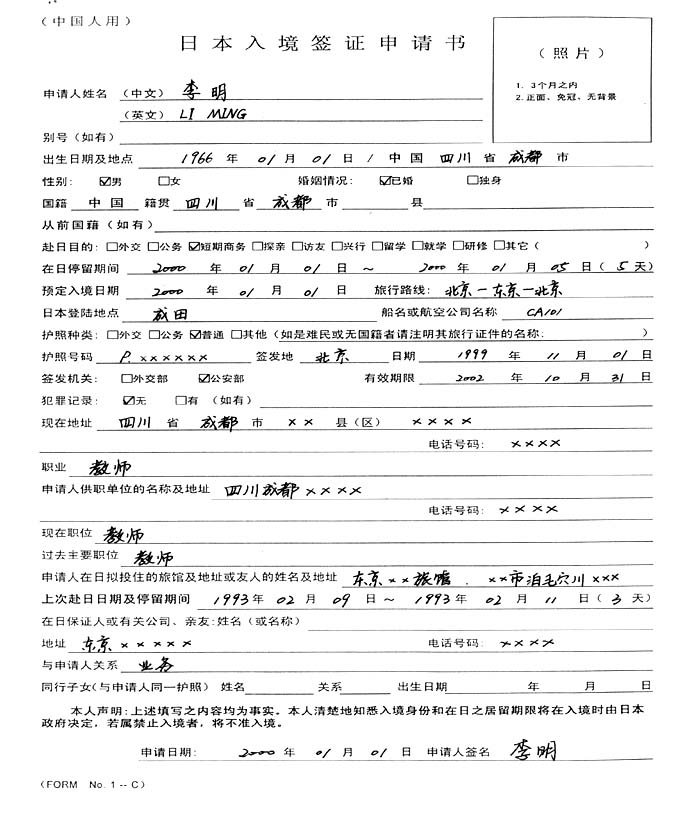 （中国人用）
日本入境签证申请书
（照片）
1. 3个月之内
2. 正面、免冠、无背景
申请人姓名 （中文） 李明
（英文） LI MING
别号（如有）
出生日期及地点 1966 年 01 月 01 日 / 中国 四川 省 成都 市
性别： ☑男 □女 婚姻情况： ☑已婚 □独身
国籍 中国 籍贯 四川 省 成都 市 县
从前国籍（如有）
赴日目的：□外交 □公务 ☑短期商务 □探亲 □访友 □兴行 □留学 □就学 □研修 □其它（ ）
在日停留期间 2000 年 01 月 01 日 ～ 2000 年 01 月 05 日（5 天）
预定入境日期 2000 年 01 月 01 日 旅行路线： 北京一东京一北京
日本登陆地点 成田 船名或航空公司名称 CA101
护照种类：□外交 □公务 ☑普通 □其他（如是难民或无国籍者请注明其旅行证件的名称： ）
护照号码 P. xxxxxx 签发地 北京 日期 1999 年 11 月 01 日
签发机关： □外交部 ☑公安部 有效期限 2002 年 10 月 31 日
犯罪记录： ☑无 □有 （如有）
现在地址 四川 省 成都 市 xx 县（区） xxxx
电话号码： xxxx
职业 教师
申请人供职单位的名称及地址 四川成都xxxx
电话号码： xxxx
现在职位 教师
过去主要职位 教师
申请人在日拟投住的旅馆及地址或友人的姓名及地址 东京xx旅馆 . xx市泊毛穴川xxx
上次赴日日期及停留期间 1993年 02 月 09 日 ～ 1993 年 02 月 11 日（3 天）
在日保证人或有关公司、亲友:姓名（或名称）
地址 东京xxxxx 电话号码： xxxx
与申请人关系 业务
同行子女(与申请人同一护照) 姓名 关系 出生日期 年 月 日
本人声明:上述填写之内容均为事实。本人清楚地知悉入境身份和在日之居留期限将在入境时由日本
政府决定，若属禁止入境者，将不准入境。
申请日期： 2000 年 01 月 01 日 申请人签名 李明
（FORM No. 1 -- C）